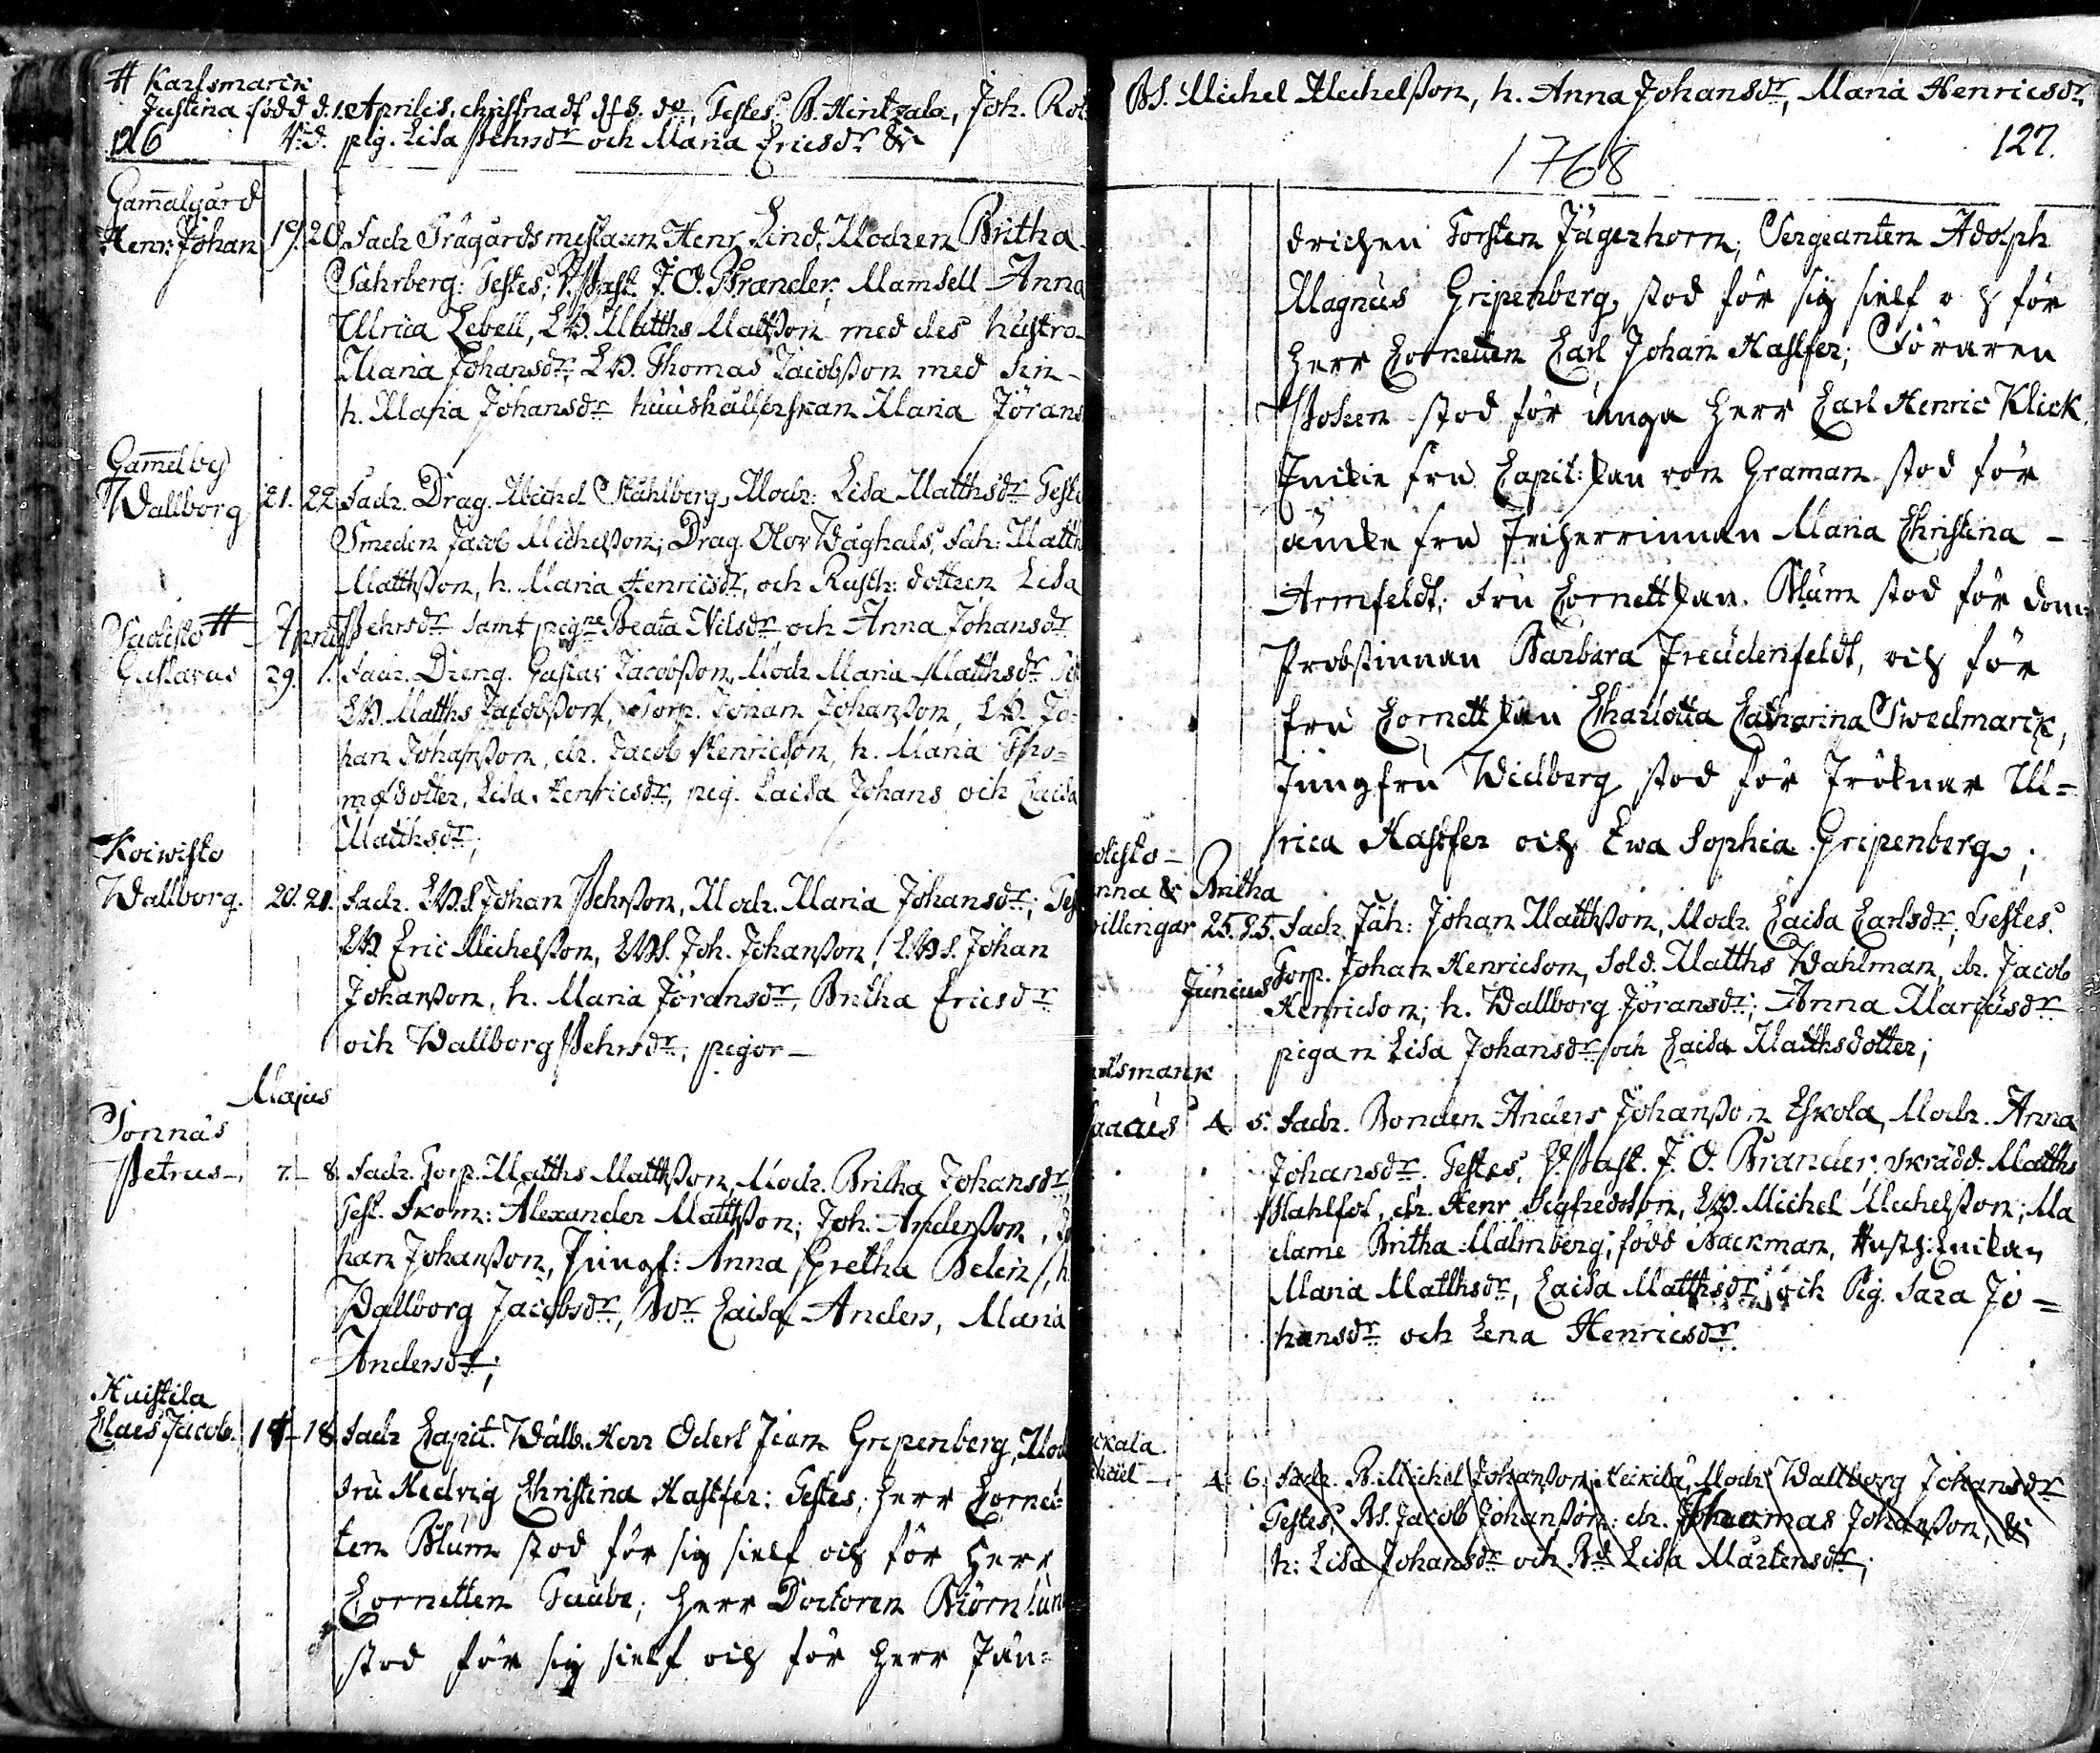 # Karlsmarck
Justina född d. 1 Aprilis, christnadt d. 3. do, Testes: B. Hintzala, Joh. Rot
126 V:d. pig. Lisa Pehrsdr och Maria Ericsdr &
Gam̄algård
Henr: Johan 19. 20. Fadr Trägårdsmestaren Henr. Lind, Modren Britha
Sahrberg: Testes; V. Past. J. O. Brander, Mamsell Anna
Ulrica Lebell, LB. Matths Mattsson med des hustro
Maria Johansdr, LB. Thomas Jacobsson med sin
h. Maria Johansdr huushållerskan Maria Jörans
Gam̄elby
Wallborg 21. 22. Fadr. Drag. Michel Ståhlberg, Modr: Lisa Matthsdr Teste
Smeden Jacob Michelsson; Drag. Olov Wåghals, Jäh: Matth
Matthsson, h. Maria Henricsdr, och Rusth: dottren Lisa
Pehrsdr samt pigne Beata Nilsdr och Anna Johansdr
Sadesto # April
Gustavus 29. 1. Fadr. Dreng. Gustav Jacobsson, Modr Maria Matthsdr
LB. Matths Jacobsson, Torp. Johan Johansson, LB. Jo-
han Johansson, dr. Jacob Henricson, h. Maria Tho-
mæ dotter, Lisa Henricsdr, pig. Caisa Johans och Caisa
Matthsdr;
Koiwisto
Wallborg. 20. 21. Fadr. LBS Johan Pehrsson, Modr. Maria Johansdr;
LB Eric Michelsson, LBS. Joh. Johansson, LBS. Johan
Johansson, h. Maria Jöransdr, Britha Ericsdr
och Wallborg Pehrsdr, pigor —
Majus
Sonnäs
Petrus — 7. — 8. Fadr. Torp. Matths Matthsson, Modr. Britha Johansdr
Test. Skom: Alexander Matthsson; Joh. Andersson,
han Johansson, Jungf: Anna Gretha Belin, h
Wallborg Jacobsdr, Caisa Anders, Maria
Andersdr;
Huistila
Claes Jacob. 17 — 18. Fadr Capit. Wälb. Herr Odert Joan Gripenberg, Mod
Fru Hedvig Christina Hastfer: Testes; Herr Corne-
ten Blum stod för sig sielf och för Herr
Cornetten Taube; Herr Doctoren Biörnlun
stod för sig sielf och för Herr Fän-
BS. Michel Michelsson, h. Anna Johansdr, Maria Henricsdr,
127.
1768
drichen Torsten Jägerhorn; Sergeanten Adolph
Magnus Gripenberg stod för sig sielf och för
Herr Cornetten Carl Johan Hastfer; Föraren
stod för unga Herr Carl Henric Klick
Enckie fru Capit:skan von Graman stod för
änckie fru Friherrinnan Maria Christina —
Armfeldt; Fru Cornettskan Blum stod för dom:
Probstinnan Barbara Freudenfeldt, och för
fru Cornettskan Charlotta Catharina Swedmarck,
Jungfru Widberg stod för Fröknar Ul=
rica Hastfer och Ewa Sophia Gripenberg;
olisto —
nna & Britha
villingar 25. 25. Fadr. Jäh: Johan Matthsson, Modr. Caisa Carlsdr; Testes:
Torp. Johan Henricson, Sold. Matths Wahlman, dr. Jacob
Junius Henricson; h. Wallborg Jöransdr; Anna Marcusdr
pigan Lisa Johansdr och Caisa Matthsdotter;
rlsmarck
saacus 4. 5. Fadr. Bonden Anders Johansson Eskola, Modr. Anna
Johansdr. Testes; V. Past. J. O. Brander, skrädd. Matths
Wahlfot, dr. Henr Sigfredsson, LB. Michel Michelsson; Ma
dame Britha Malmberg, född Backman, Rusth:Enckan
Maria Matthsdr, Caisa Matthsdr och Pig. Sara Jo=
hansdr och Lena Henricsdr.
ckala.
ichäel — 4. 6. Fadr. B. Michel Johansson Heickilä, Modr Wallborg Johansdr
Testes; BS. Jacob Johansson: dr. Thomas Johansson, &
h: Lisa Johansdr och Lisa Mårtensdr;